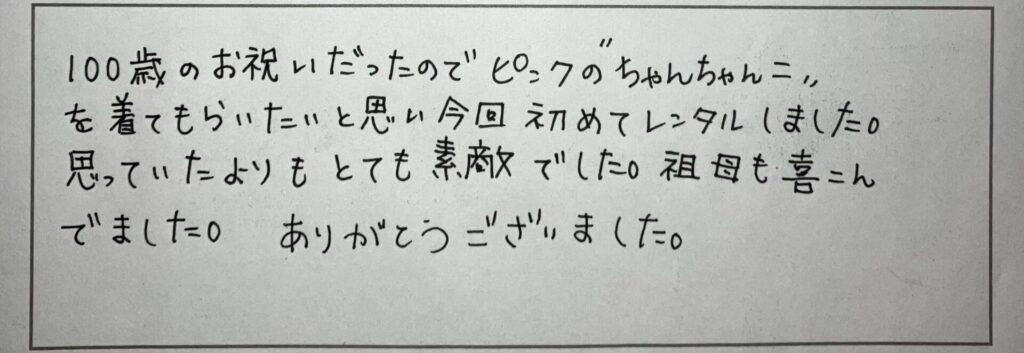 100歳のお祝いだったのでピンクの"ちゃんちゃんこ"
を着てもらいたいと思い今回初めてレンタルしました。
思っていたよりもとても素敵でした。祖母も喜こん
でました。 ありがとうございました。